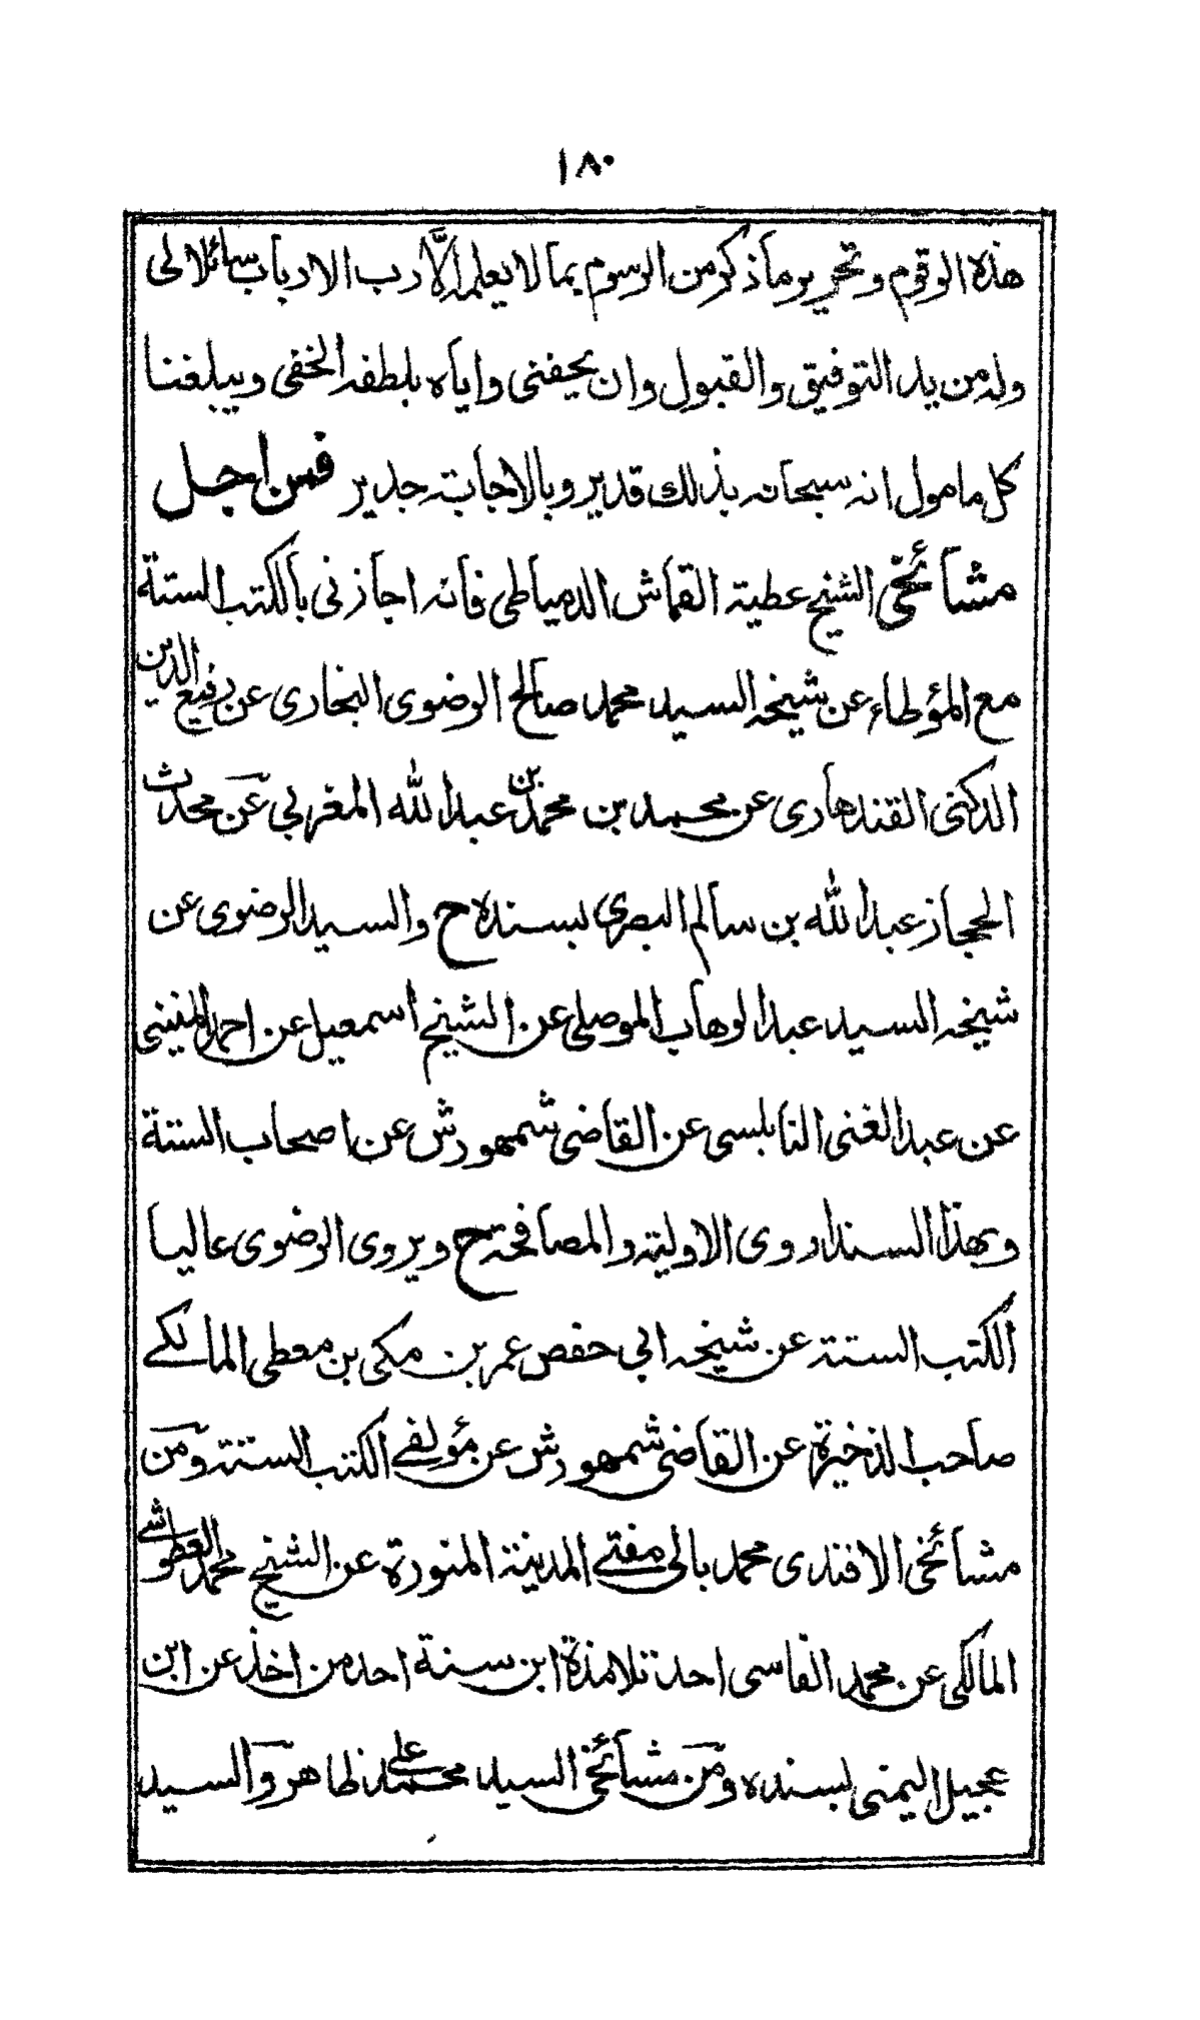 ١٨٠
هذه الرقوم وتحرير ماذكر من الرسوم بما لا يعلمه الّا رب الارباب سائلا لى
وله من يد التوفيق والقبول وان يحفنى واياه بلطفه الخفى ويبلغنا
كل مامول انه سبحانه بذلك قدير وبالاجابة جدير فمن اجل
مشائخى الشيخ عطية القماش الدمياطى فانه اجازنى بالكتب الستة
مع المؤطاء عن شيخه السيد محمد صالح الرضوى البخارى عن رفيع الدين
الدكنى القندهارى عن محمد بن محمد بن عبد الله المغربى عن محدث
الحجاز عبد الله بن سالم البصرى بسنده ح والسيد الرضوى عن
شيخه السيد عبد الوهاب الموصلى عن الشيخ اسمعيل عن احمد المنينى
عن عبد الغنى النابلسى عن القاضى شمهورش عن اصحاب الستة
وبهذا السند اروى الاولية والمصافحة ح ويروى الرضوى عاليا
الكتب الستة عن شيخه ابى حفص عمر بن مكى بن معطى المالكے
صاحب الذخيرة عن القاضى شمهورش عن مؤلفے الكتب الستة ومن
مشائخى الافندى محمد بالى مفتے المدينة المنورة عن الشيخ محمد العطوشے
المالكى عن محمد الفاسى احد تلامذة ابن سنة احد من اخذ عن ابن
عجيل اليمنى بسنده ومن مشائخى السيد محمد على ظاهر والسيد